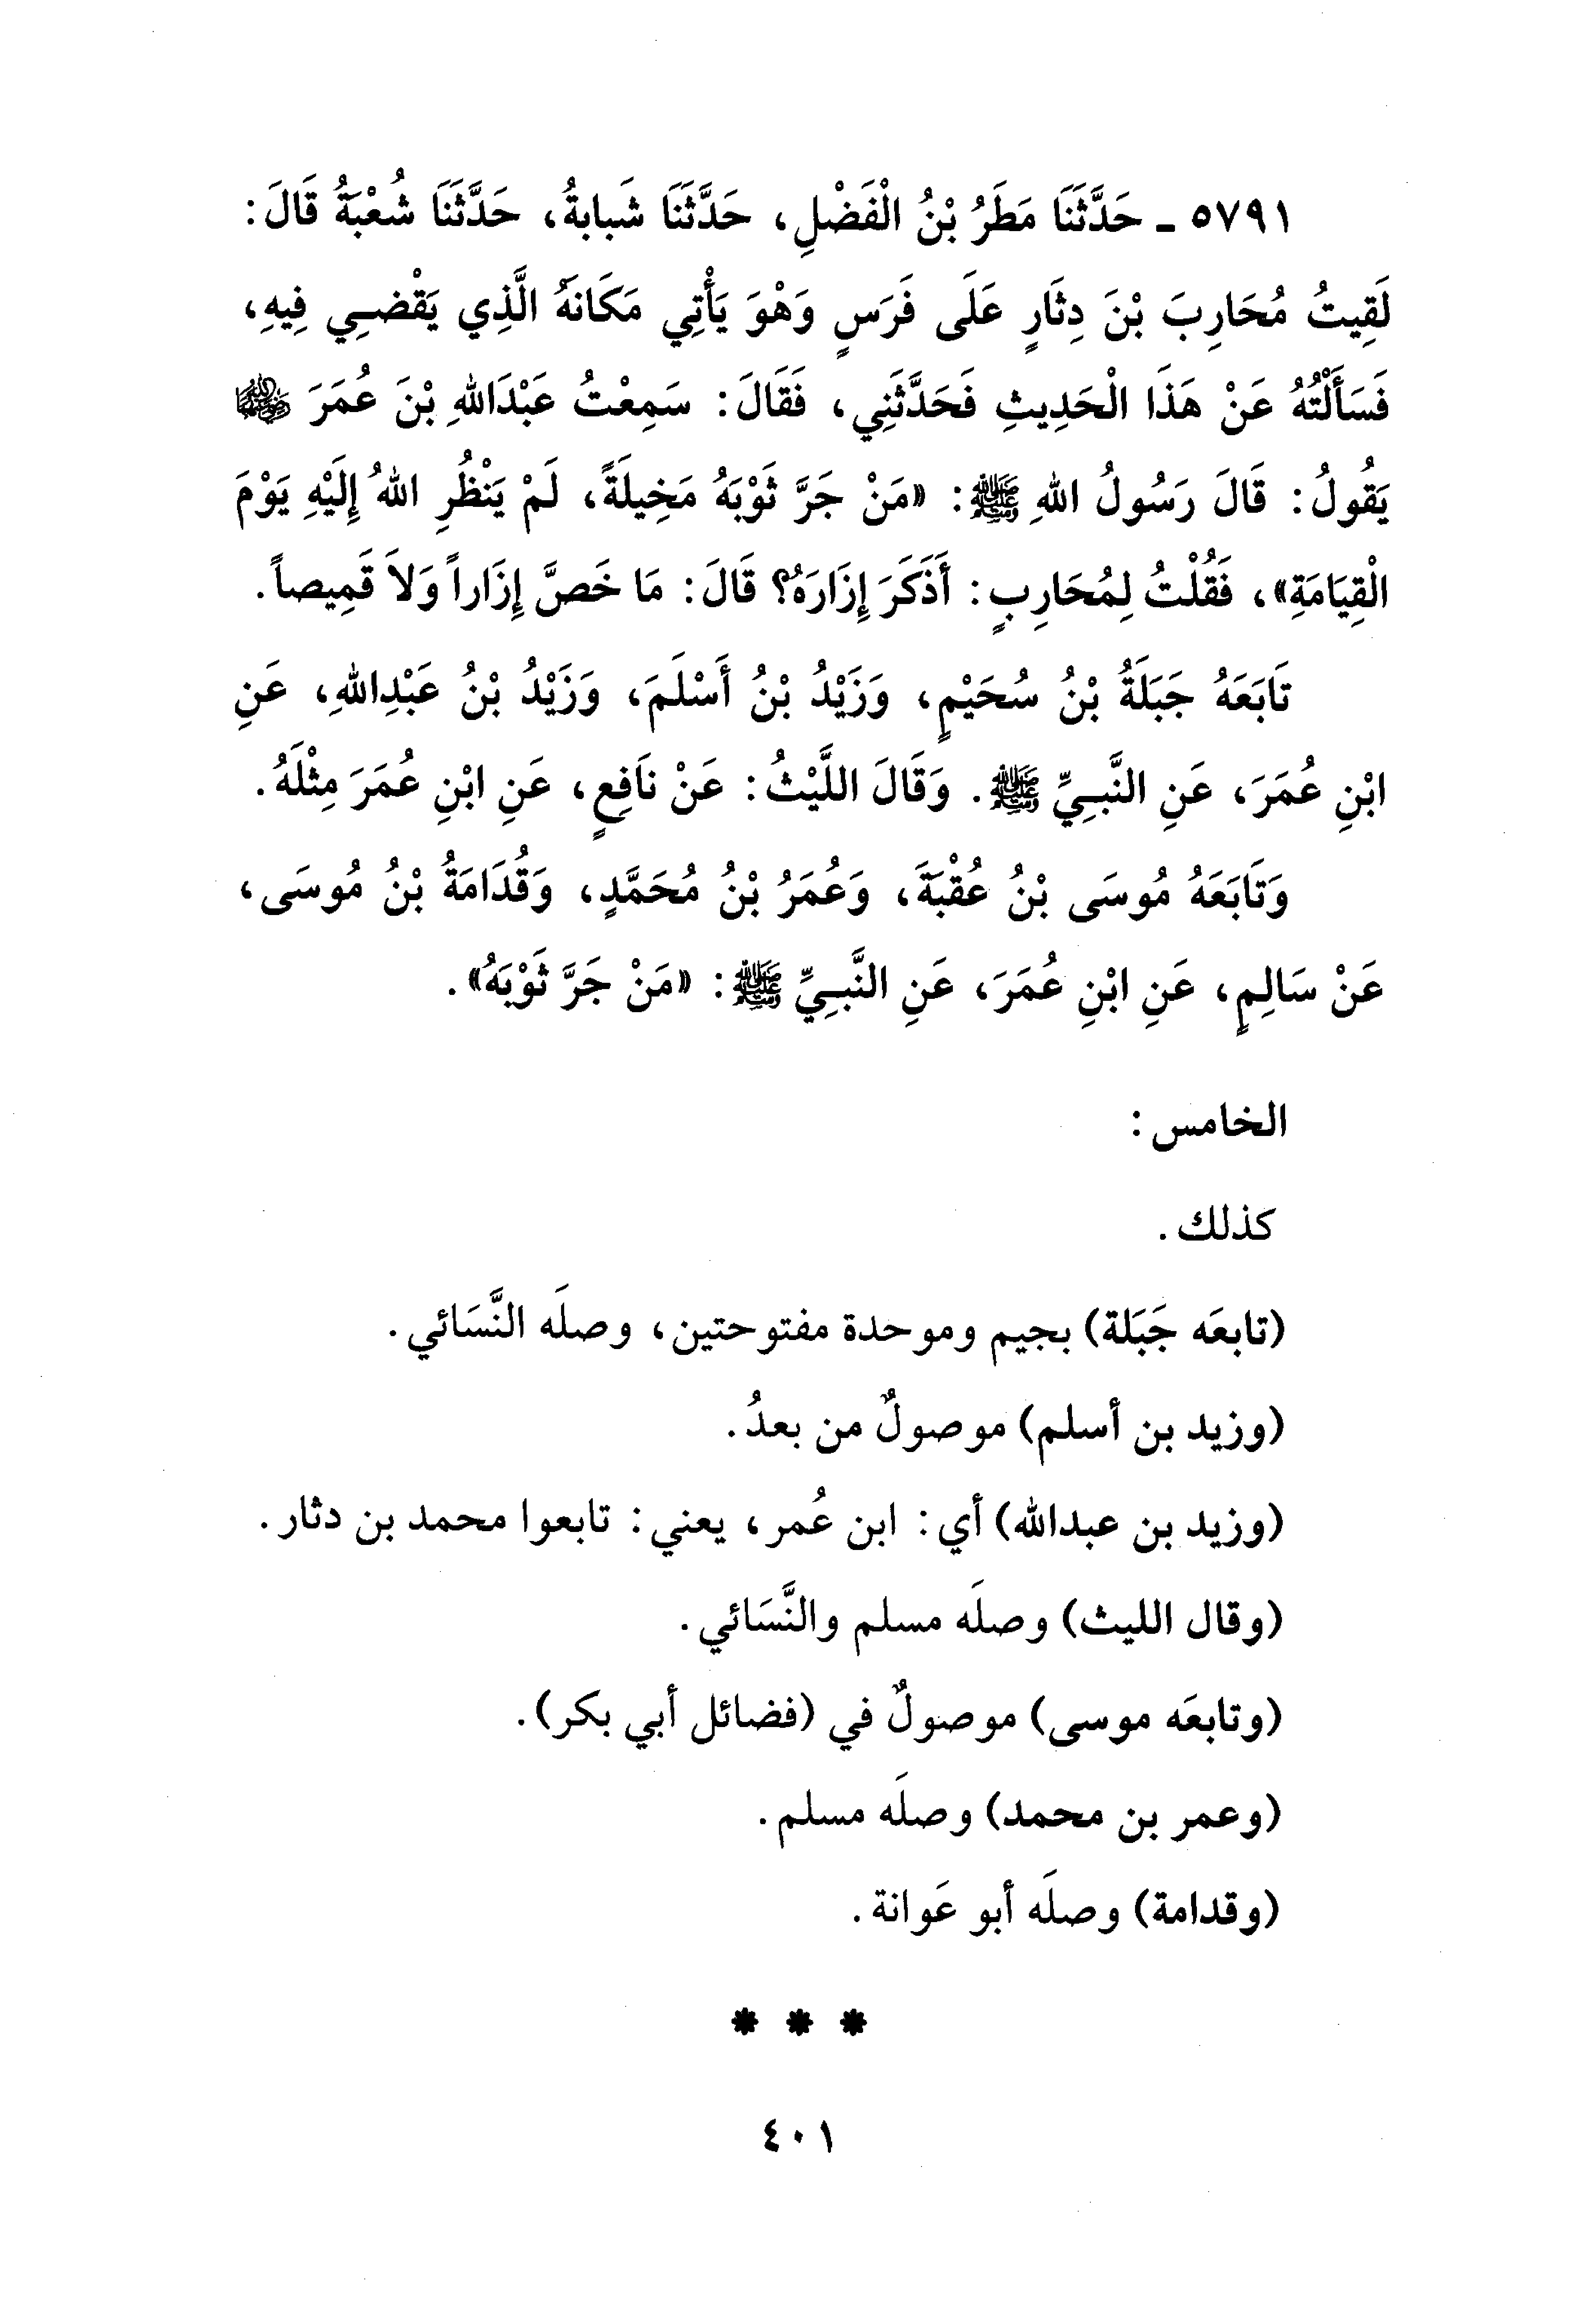 ٥٧٩١ ـ حَدَّثَنَا مَطَرُ بْنُ الْفَضْلِ، حَدَّثَنَا شَبابةُ، حَدَّثَنَا شُعْبَةُ قَالَ:
لَقِيتُ مُحَارِبَ بْنَ دِثَارٍ عَلَى فَرَسٍ وَهْوَ يَأْتِي مَكَانَهُ الَّذِي يَقْضِي فِيهِ،
فَسَأَلْتُهُ عَنْ هَذَا الْحَدِيثِ فَحَدَّثَنِي، فَقَالَ: سَمِعْتُ عَبْدَاللهِ بْنَ عُمَرَ رضي الله عنهما
يَقُولُ: قَالَ رَسُولُ اللهِ ﷺ: «مَنْ جَرَّ ثَوْبَهُ مَخِيلَةً، لَمْ يَنْظُرِ اللهُ إِلَيْهِ يَوْمَ
الْقِيَامَةِ»، فَقُلْتُ لِمُحَارِبٍ: أَذَكَرَ إِزَارَهُ؟ قَالَ: مَا خَصَّ إِزَاراً وَلاَ قَمِيصاً.
تَابَعَهُ جَبَلَةُ بْنُ سُحَيْمٍ، وَزَيْدُ بْنُ أَسْلَمَ، وَزَيْدُ بْنُ عَبْدِاللهِ، عَنِ
ابْنِ عُمَرَ، عَنِ النَّبِيِّ ﷺ. وَقَالَ اللَّيْثُ: عَنْ نَافِعٍ، عَنِ ابْنِ عُمَرَ مِثْلَهُ.
وَتَابَعَهُ مُوسَى بْنُ عُقْبَةَ، وَعُمَرُ بْنُ مُحَمَّدٍ، وَقُدَامَةُ بْنُ مُوسَى،
عَنْ سَالِمٍ، عَنِ ابْنِ عُمَرَ، عَنِ النَّبِيِّ ﷺ: «مَنْ جَرَّ ثَوْبَهُ».
الخامس:
كذلك.
(تابعَه جَبَلة) بجيم وموحدة مفتوحتين، وصلَه النَّسَائي.
(وزيد بن أسلم) موصولٌ من بعدُ.
(وزيد بن عبدالله) أي: ابن عُمر، يعني: تابعوا محمد بن دثار.
(وقال الليث) وصلَه مسلم والنَّسَائي.
(وتابعَه موسى) موصولٌ في (فضائل أبي بكر).
(وعمر بن محمد) وصلَه مسلم.
(وقدامة) وصلَه أبو عَوانة.
* * *
٤٠١